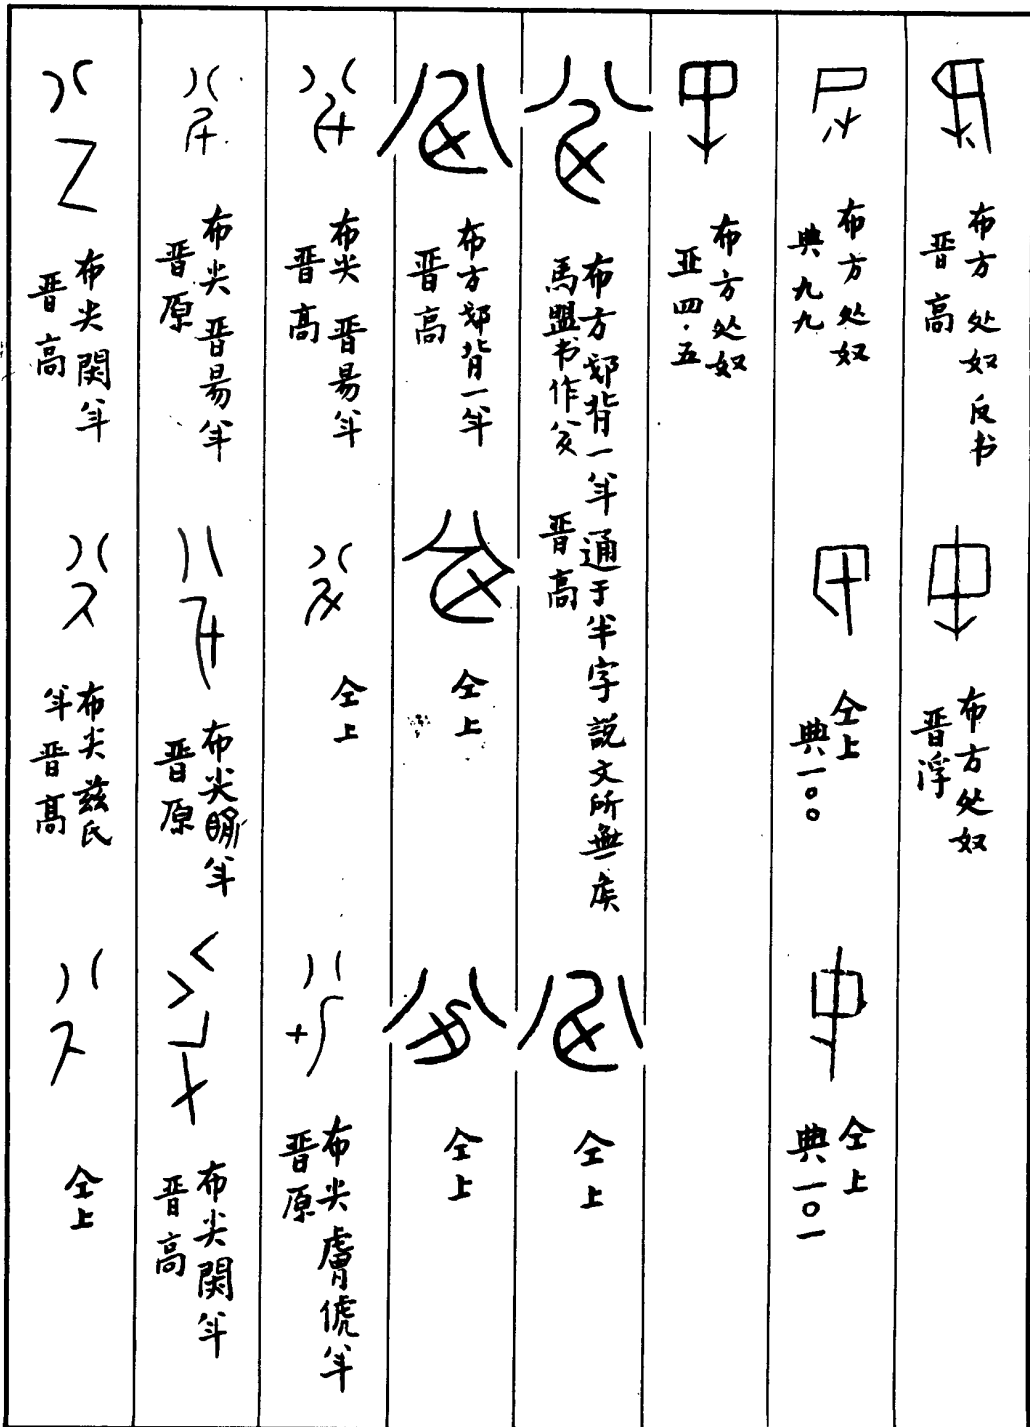 布方处奴反书
晋高
布方处奴
晋浮
布方处奴
典九九
仝上
典一〇〇
仝上
典一〇一
布方处奴
亚四·五
布方 背一 通于半字説文所無矦
馬盟书作 晋高
仝上
布方 背一
晋高
仝上
仝上
布尖晋昜
晋高
仝上
布尖膚俿
晋原
布尖晋昜
晋原
布尖
晋原
布尖関
晋高
布尖関
晋高
布尖兹氏
晋高
仝上